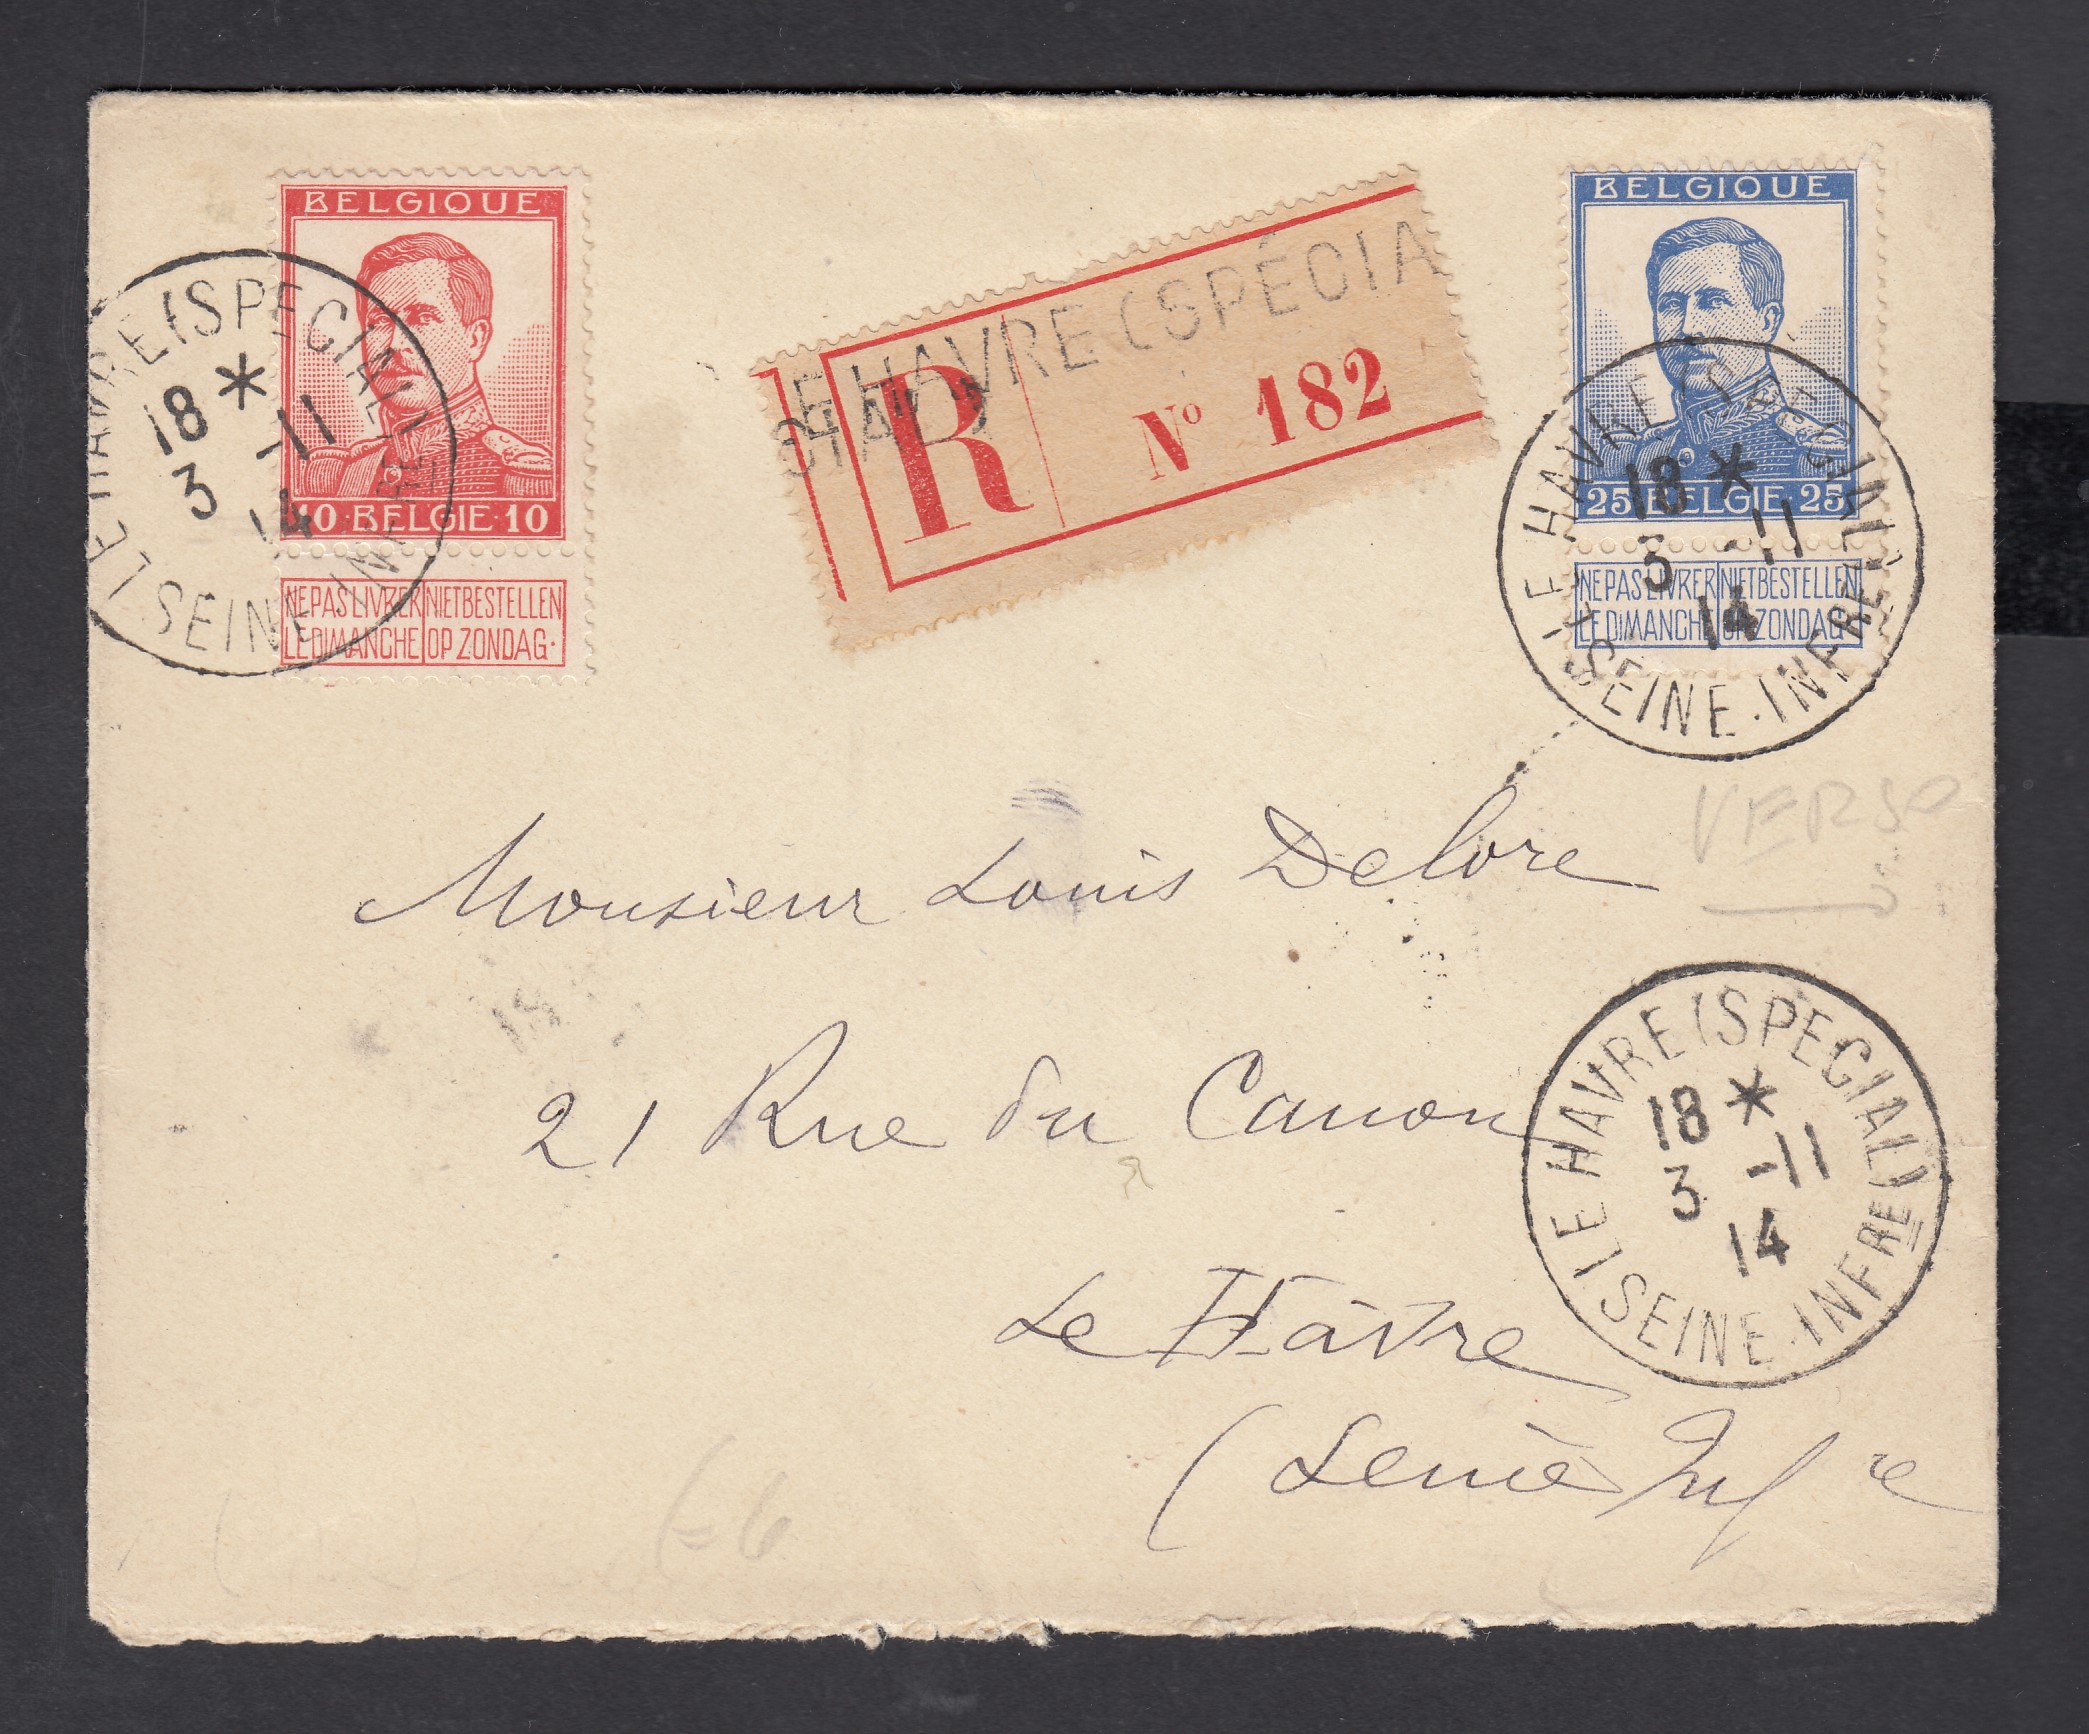 BELGIQUE
10 BELGIE 10
NE PAS LIVRER NIET BESTELLEN
LE DIMANCHE OP ZONDAG.
LE HAVRE (SPECIAL)
18 *
3 -11
14
SEINE-INFRE
LE HAVRE (SPÉCIA
R No 182
BELGIQUE
25 BELGIE 25
NE PAS LIVRER NIET BESTELLEN
LE DIMANCHE OP ZONDAG
LE HAVRE (SPECIAL)
18 *
3 -11
14
SEINE-INFRE
VERSO
Monsieur Louis Delore
21 Rue du Canon
Le Hâvre
LE HAVRE (SPECIAL)
18 *
3 -11
14
SEINE-INFRE